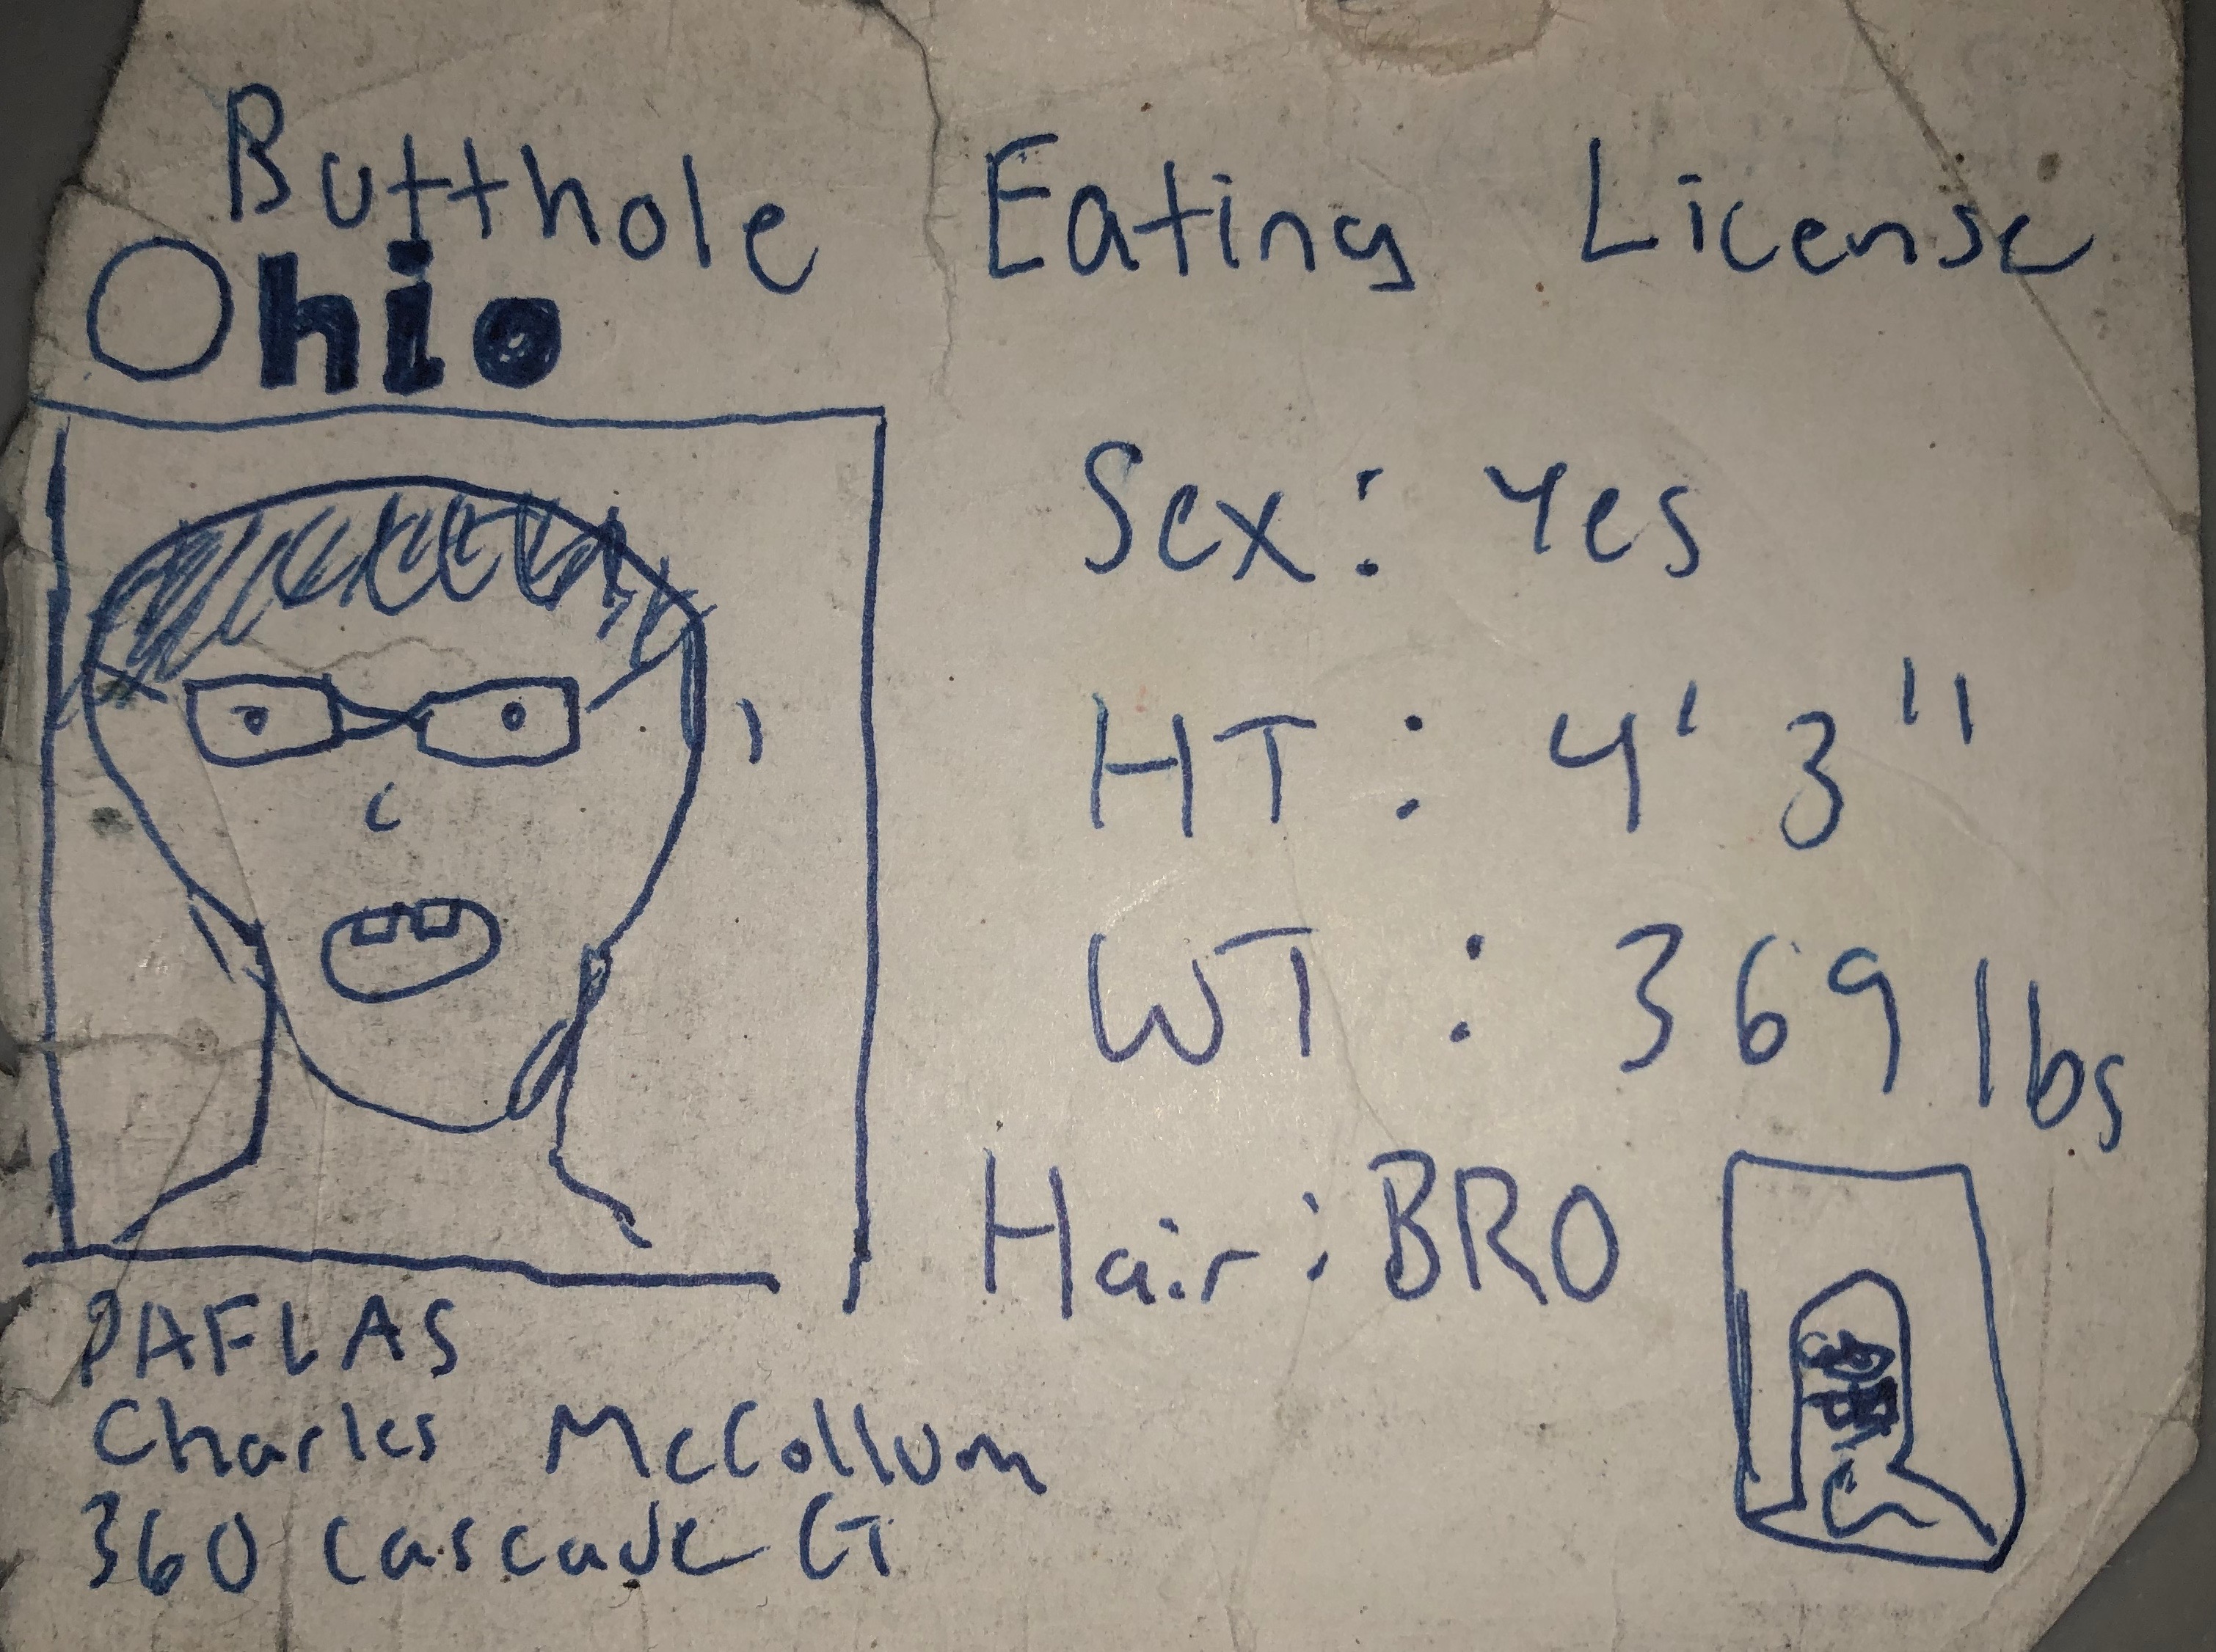 Butthole Eating License
Ohio
Sex: Yes
HT: 4' 3"
WT: 369 lbs
Hair: BRO
PAFLAS
Charles McCollum
360 Cascade CT